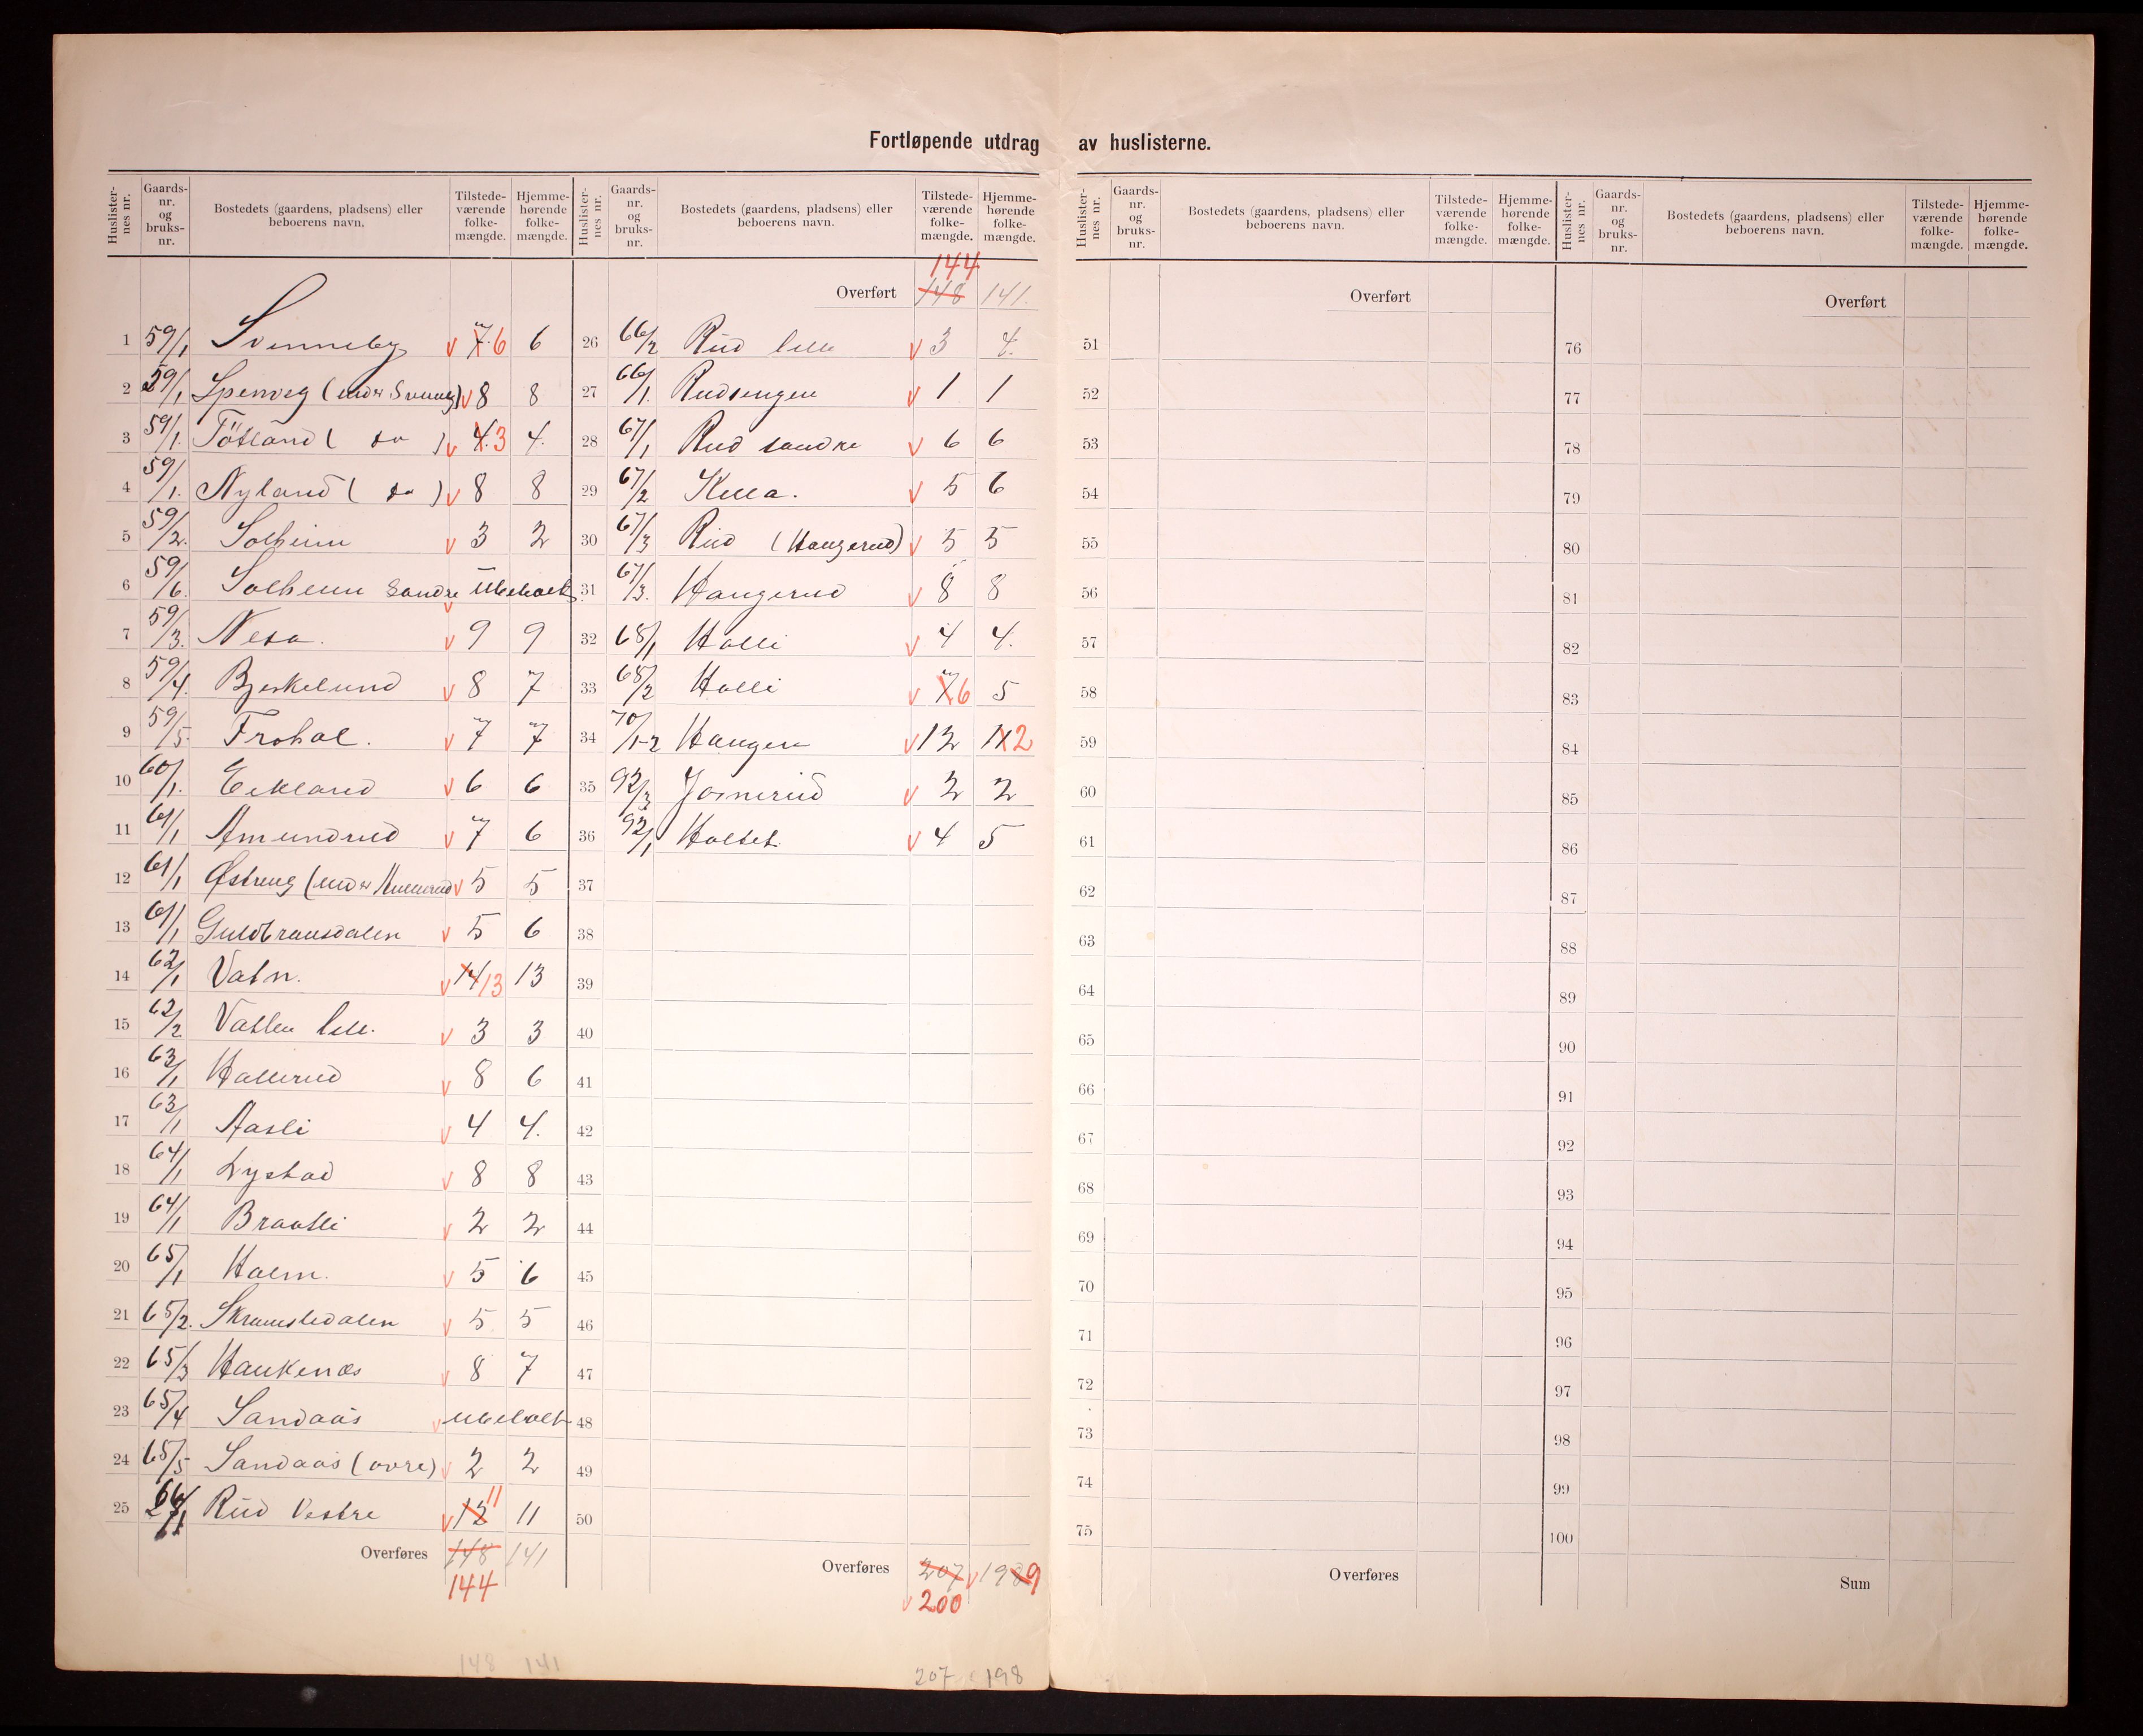 Fortløpende utdrag av huslisterne.
Huslister-nes nr. Gaards-nr. og bruks-nr. Bostedets (gaardens, pladsens) eller beboerens navn. Tilstede-værende folke-mængde. Hjemme-hørende folke-mængde.
1 59/1 Svenneby v 7 6 6
2 59/1 8 8
3 59/1. Tötland ( do ) v 4. 3 4.
4 59/1. Nyland ( do ) v 8 8
5 59/2. Solheim v 3 2
6 59/6. Solheim søndre Ubeboet
7 59/3. Nesa. v 9 9
8 59/4. Bjerkelund v 8 7
9 59/5. Frohol. v 7 7
10 60/1. Eekland v 6 6
11 61/1 Amundrud v 7 6
12 61/1 Østeng (under v 5 5
13 61/1 Guldbransdalen v 5 6
14 62/1 Vatn. v 14 13 13
15 62/2 lille. v 3 3
16 63/1 Hallerud v 8 6
17 63/1 Aasli v 4 4.
18 64/1 Lystad v 8 8
19 64/1 Braatli v 2 2
20 65/1 Holm. v 5 6
21 65/2. v 5 5
22 65/3 Haukenæs v 8 7
23 65/4 Sandaas v Ubeboet
24 65/5 Sandaas (øvre) v 2 2
25 66/1 Rud Vestre v 12 11 11
Overføres 148 141
144
148 141
Huslister-nes nr. Gaards-nr. og bruks-nr. Bostedets (gaardens, pladsens) eller beboerens navn. Tilstede-værende folke-mængde. Hjemme-hørende folke-mængde.
144
Overført 148 141.
26 66/2 Rud lille v 3 4.
27 66/1. Rudsengen v 1 1
28 67/1 Rud søndre v 6 6
29 67/2 Killa. v 5 6
30 67/3 Rud (Haugerud) v 5 5
31 67/3. Haugerud v 8 8
32 68/1 Holli v 4 4.
33 68/2 Holli v 7 6 5
34 70/1-2 Haugen v 12 11 2
35 92/3 Jonsrud v 2 2
36 92/1 Holtet. v 4 5
37
38
39
40
41
42
43
44
45
46
47
48
49
50
Overføres 207 v 198 9
v 200
207 198
Huslister-nes nr. Gaards-nr. og bruks-nr. Bostedets (gaardens, pladsens) eller beboerens navn. Tilstede-værende folke-mængde. Hjemme-hørende folke-mængde.
Overført
51
52
53
54
55
56
57
58
59
60
61
62
63
64
65
66
67
68
69
70
71
72
73
74
75
Overføres
Huslister-nes nr. Gaards-nr. og bruks-nr. Bostedets (gaardens, pladsens) eller beboerens navn. Tilstede-værende folke-mængde. Hjemme-hørende folke-mængde.
Overført
76
77
78
79
80
81
82
83
84
85
86
87
88
89
90
91
92
93
94
95
96
97
98
99
100
Sum